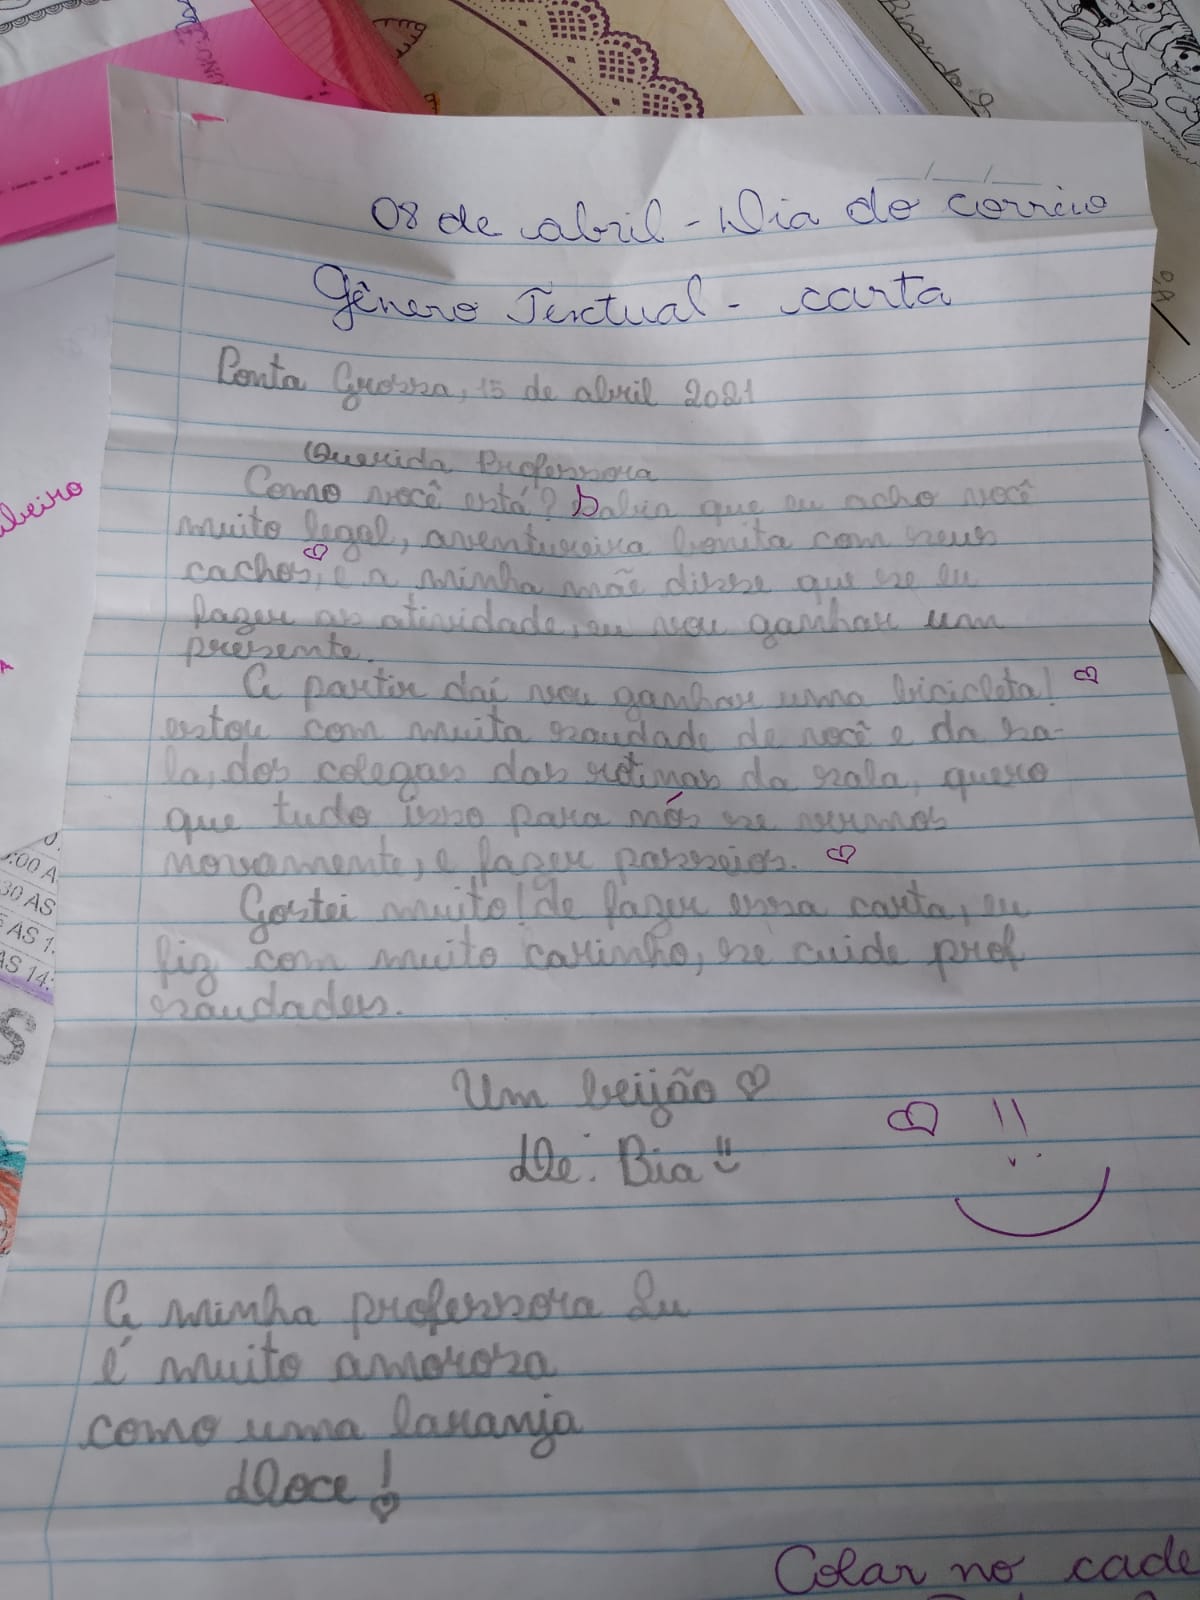 08 de abril - Dia do correio
Gênero Textual - carta
Ponta Grossa, 15 de abril 2021
Querida Professora
Como você está? Sabia que eu acho você
muito legal, aventureira bonita com seus
cachos, e a minha mãe disse que se eu
fazer as atividade, eu vou ganhar um
presente.
A partir daí vou ganhar uma bicicleta!
estou com muita saudade de você e da sa-
la, dos colegas das rotinas da sala, quero
que tudo isso para nós se vermos
novamente, e fazer passeios.
Gostei muito! de fazer essa carta, eu
fiz com muito carinho, se cuide prof
saudades.
Um beijão
De: Bia
A minha professora Lu
é muito amorosa
como uma laranja
Doce!
Colar no cade
:00 A
30 AS
AS 1
AS 14: